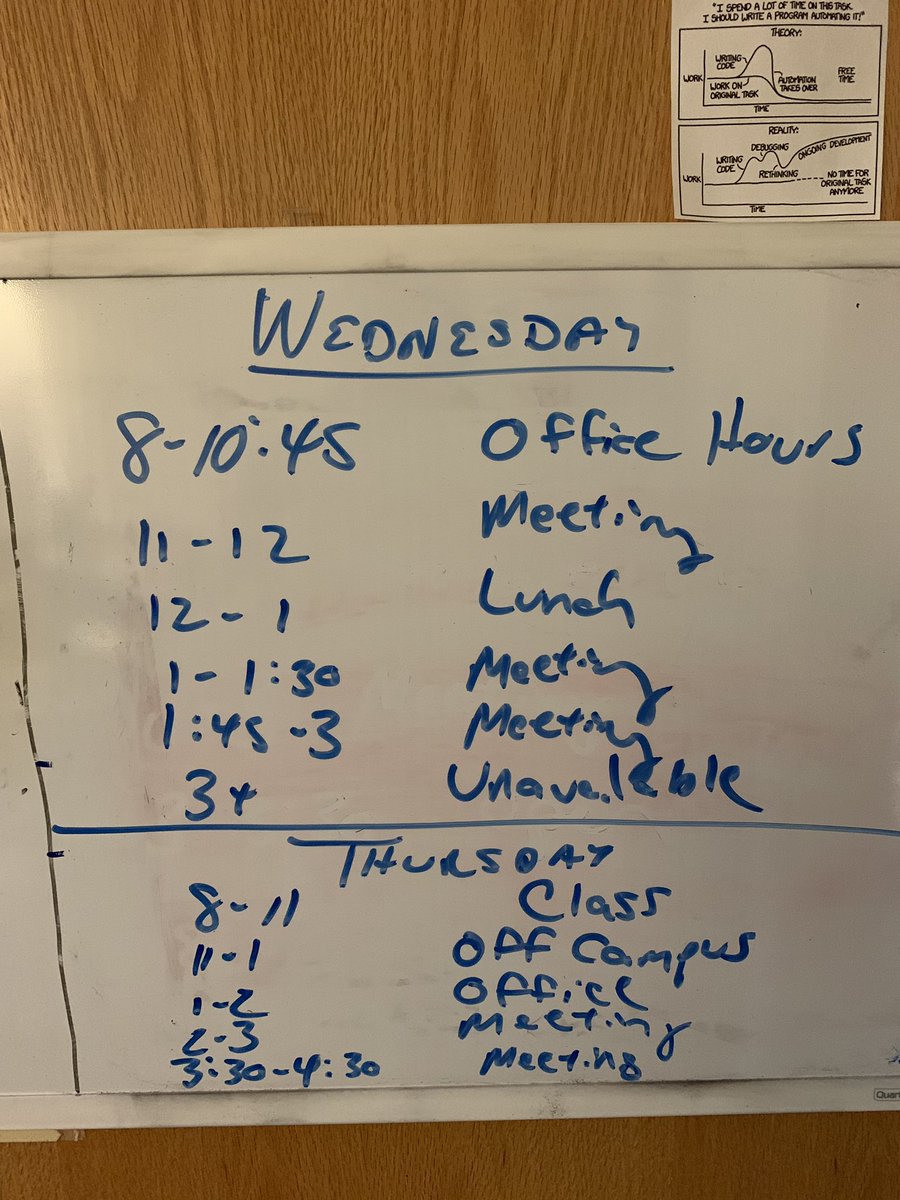 "I SPEND A LOT OF TIME ON THIS TASK.
I SHOULD WRITE A PROGRAM AUTOMATING IT!"
THEORY:
WRITING
CODE
WORK
WORK ON
ORIGINAL TASK
AUTOMATION
TAKES OVER
FREE
TIME
TIME
REALITY:
DEBUGGING
ONGOING DEVELOPMENT
WRITING
CODE
RETHINKING
WORK
NO TIME FOR
ORIGINAL TASK
ANYMORE
TIME
WEDNESDAY
8-10:45 Office Hours
11-12 Meeting
12-1 Lunch
1-1:30 Meeting
1:45-3 Meeting
3+ Unavaileble
THURSDAY
8-11 Class
11-1 Off Campus
1-2 Office
2-3 Meeting
3:30-4:30 Meeting